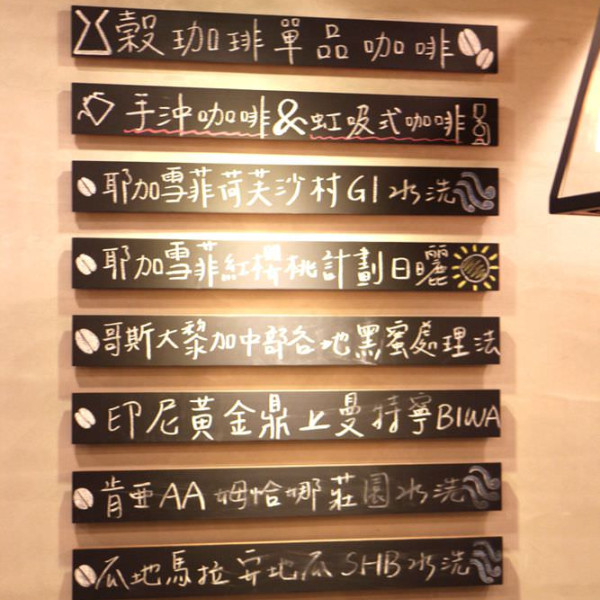 穀珈琲單品咖啡
手沖咖啡&虹吸式咖啡
耶加雪菲荷芙沙村G1水洗
耶加雪菲紅櫻桃計劃日曬
哥斯大黎加中部各地黑蜜處理法
印尼黃金鼎上曼特寧BIWA
肯亞AA姆恰娜莊園水洗
瓜地馬拉安地瓜SHB水洗